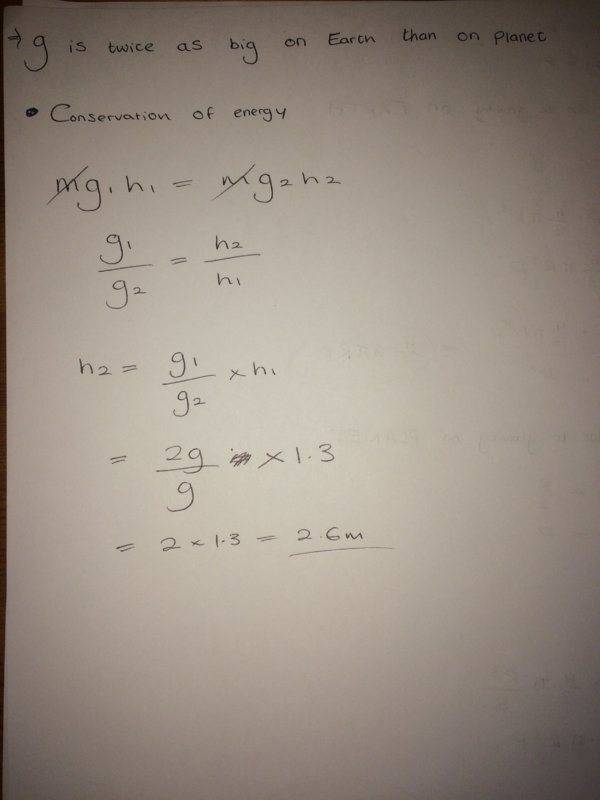 ⇒ g is twice as big on Earth than on planet
• Conservation of energy
mg₁h₁ = mg₂h₂
g₁/g₂ = h₂/h₁
h₂ = g₁/g₂ × h₁
= 2g/g × 1.3
= 2 × 1.3 = 2.6m